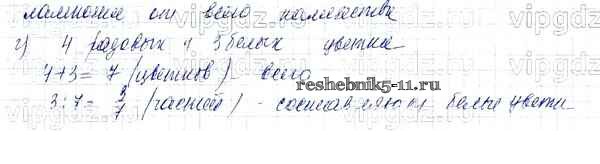 лампочки от всего количества
г) 4 садовых и 3 белых цветка
4+3=7 (цветков) всего
3:7= 3/7 (частей) - составляют белые цветы
reshebnik5-11.ru